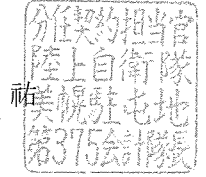 分任契約担当官
陸上自衛隊
美幌駐屯地
第375会計隊長
祐